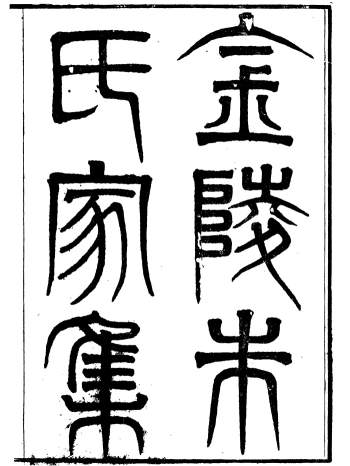 金陵朱
氏家集